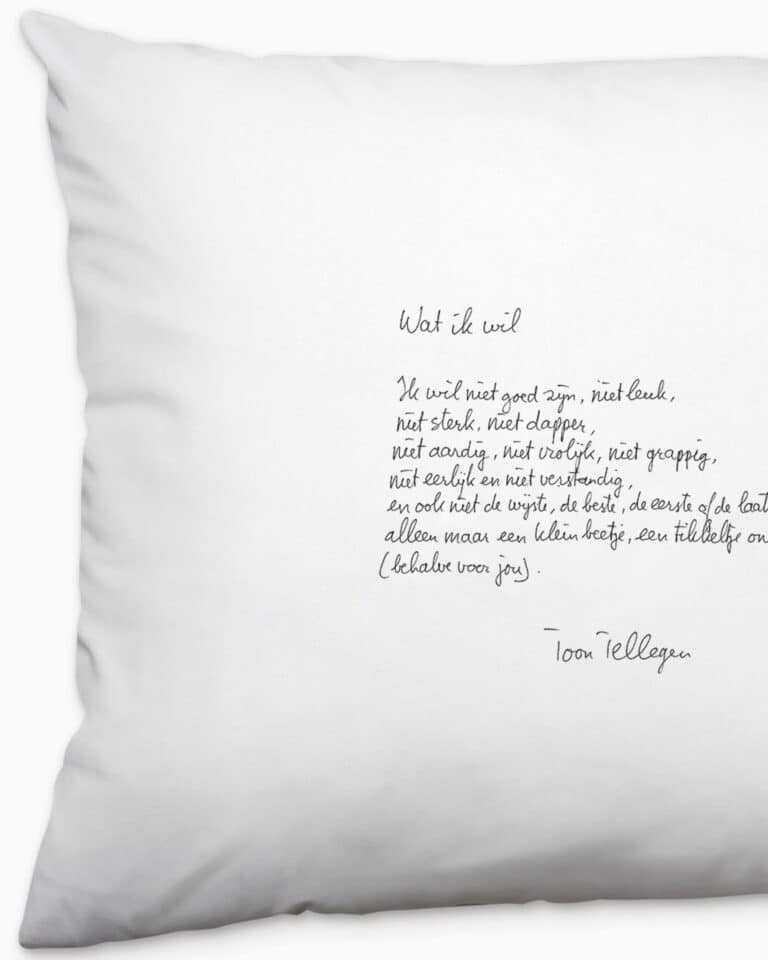 Wat ik wil
Ik wil niet goed zijn, niet leuk,
niet sterk, niet dapper,
niet aardig, niet vrolijk, niet grappig,
niet eerlijk en niet verstandig,
en ook niet de wijste, de beste, de eerste of de laat
alleen maar een klein beetje, een tikkeltje on
(behalve voor jou).
Toon Tellegen